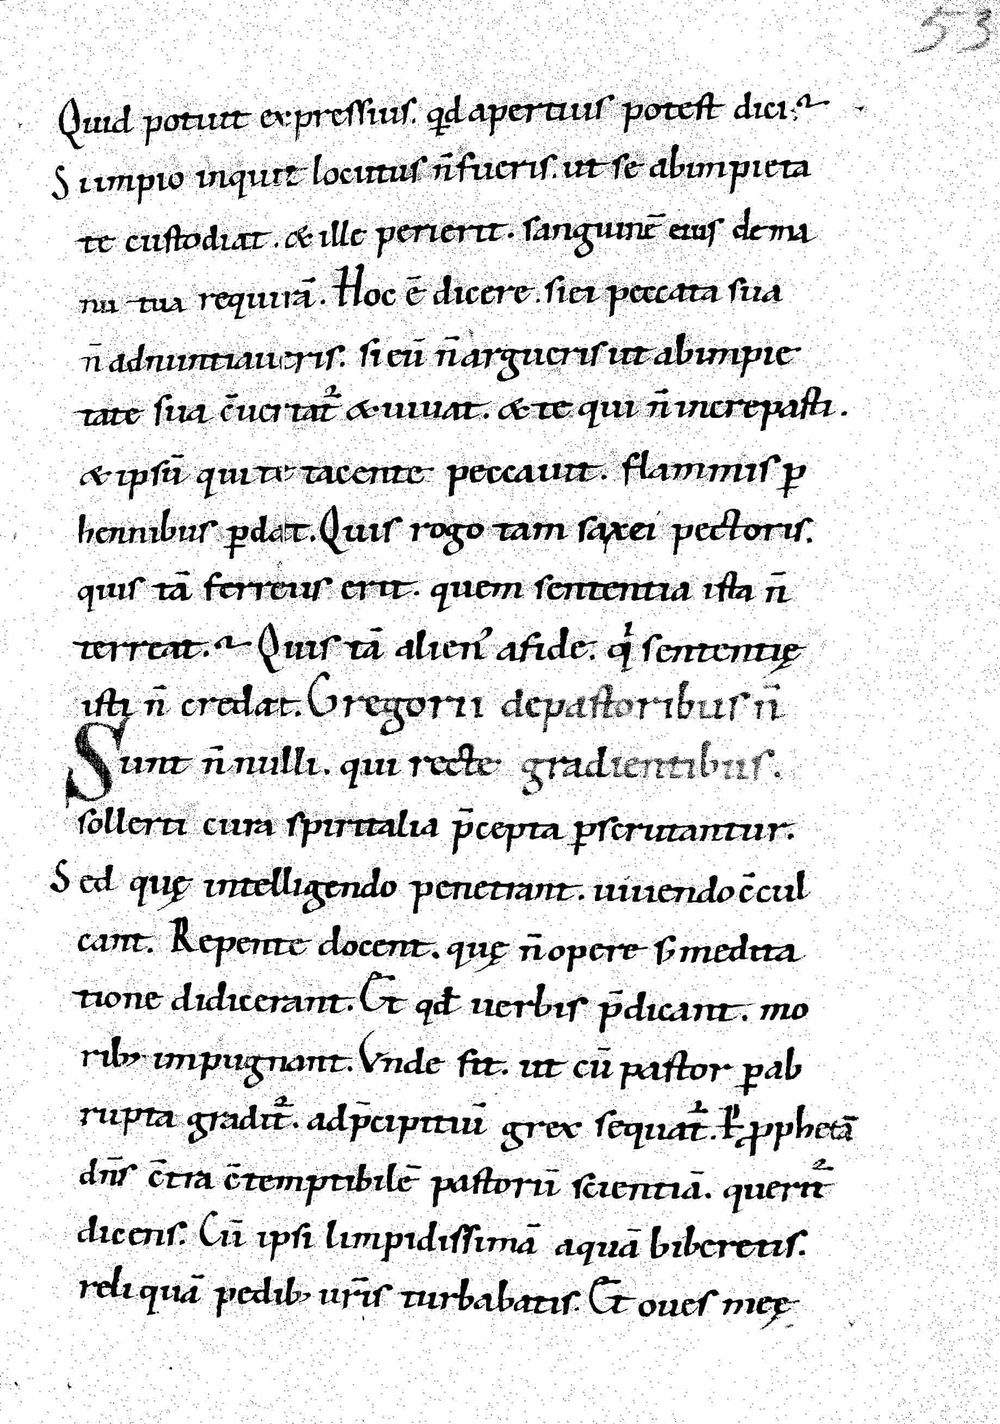 53
Quid potuit expressius. qd apertius potest dici?
Si impio inquit locutus n̄ fueris. ut se ab impieta
te custodiat. & ille perierit. sanguinē eius de ma
nu tua requirā. Hoc ē dicere. si ei peccata sua
n̄ adnuntiaueris. si eū n̄ argueris ut ab impie
tate sua c̄uertat᷑ & uiuat. & te qui n̄ increpasti.
& ipsū qui te tacente peccauit. flammis ꝑ
hennibus ꝑdat. Quis rogo tam saxei pectoris.
quis tā ferreus erit. quem sententia ista n̄
terreat? Quis tā alien᾿ a fide. qͥ sententię
isti n̄ credat. Gregorii de pastoribus n̄
Sunt n̄nulli. qui recte gradientibus.
sollerti cura spiritalia p̄cepta ꝑscrutantur.
Sed quę intelligendo penetrant. uiuendo c̄cul
cant. Repente docent. quę n̄ opere s; medita
tione didicerant. Et qđ uerbis p̄dicant. mo
rib; impugnant. Vnde fit. ut cū pastor ꝑ ab
rupta gradit᷑. ad p̄cipitiū grex sequat᷑. P̱ ꝓphetā
dn̄s c̄tra c̄temptibilē pastorū scientiā. querit᷑
dicens. Cū ipsi limpidissimā aquā biberetis.
reliquā pedib; ur̄is turbabatis. Et oues meę